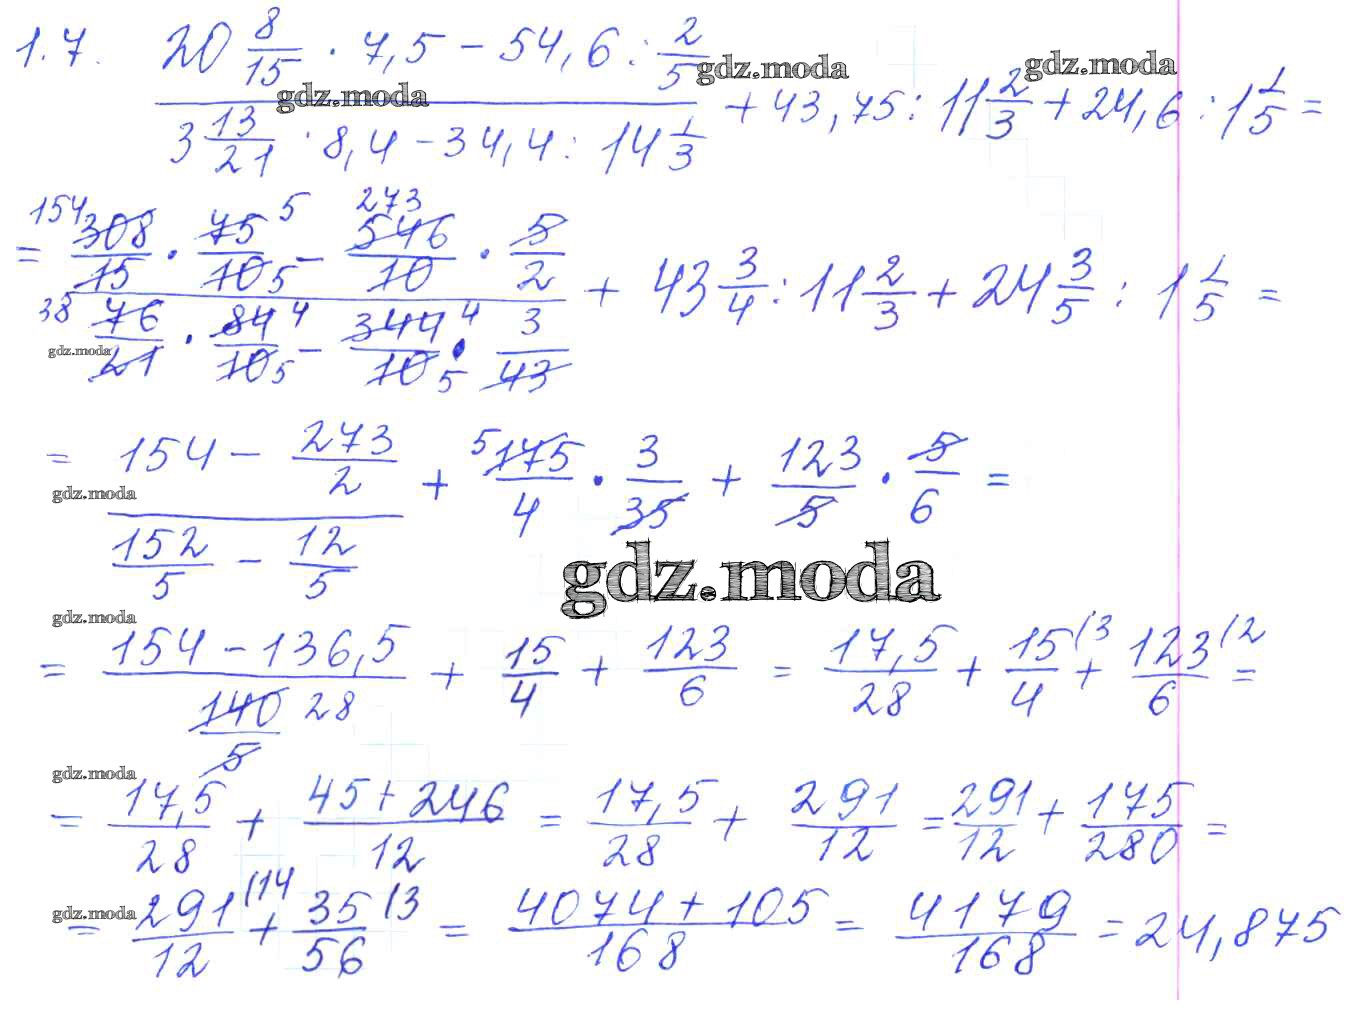 1.7. (20 8/15 · 7,5 − 54,6 : 2/5) / (3 13/21 · 8,4 − 34,4 : 14 1/3) + 43,75 : 11 2/3 + 24,6 : 1 1/5 =
gdz.moda
gdz.moda
gdz.moda
154 5 273
= (308/15 · 75/10 5 − 546/10 · 5/2) / (38 76/21 · 84/10 4 5 − 344/10 4 5 · 3/43) + 43 3/4 : 11 2/3 + 24 3/5 : 1 1/5 =
gdz.moda
= (154 − 273/2) / (152/5 − 12/5) + 5 175/4 · 3/35 + 123/5 · 5/6 =
gdz.moda
gdz.moda
gdz.moda
= (154 − 136,5) / (140/5 28) + 15/4 + 123/6 = 17,5/28 + 15/4 (3 + 123/6 (2 =
gdz.moda
= 17,5/28 + (45 + 246)/12 = 17,5/28 + 291/12 = 291/12 + 175/280 =
gdz.moda
= 291/12 (14 + 35/56 (3 = (4074 + 105)/168 = 4179/168 = 24,875